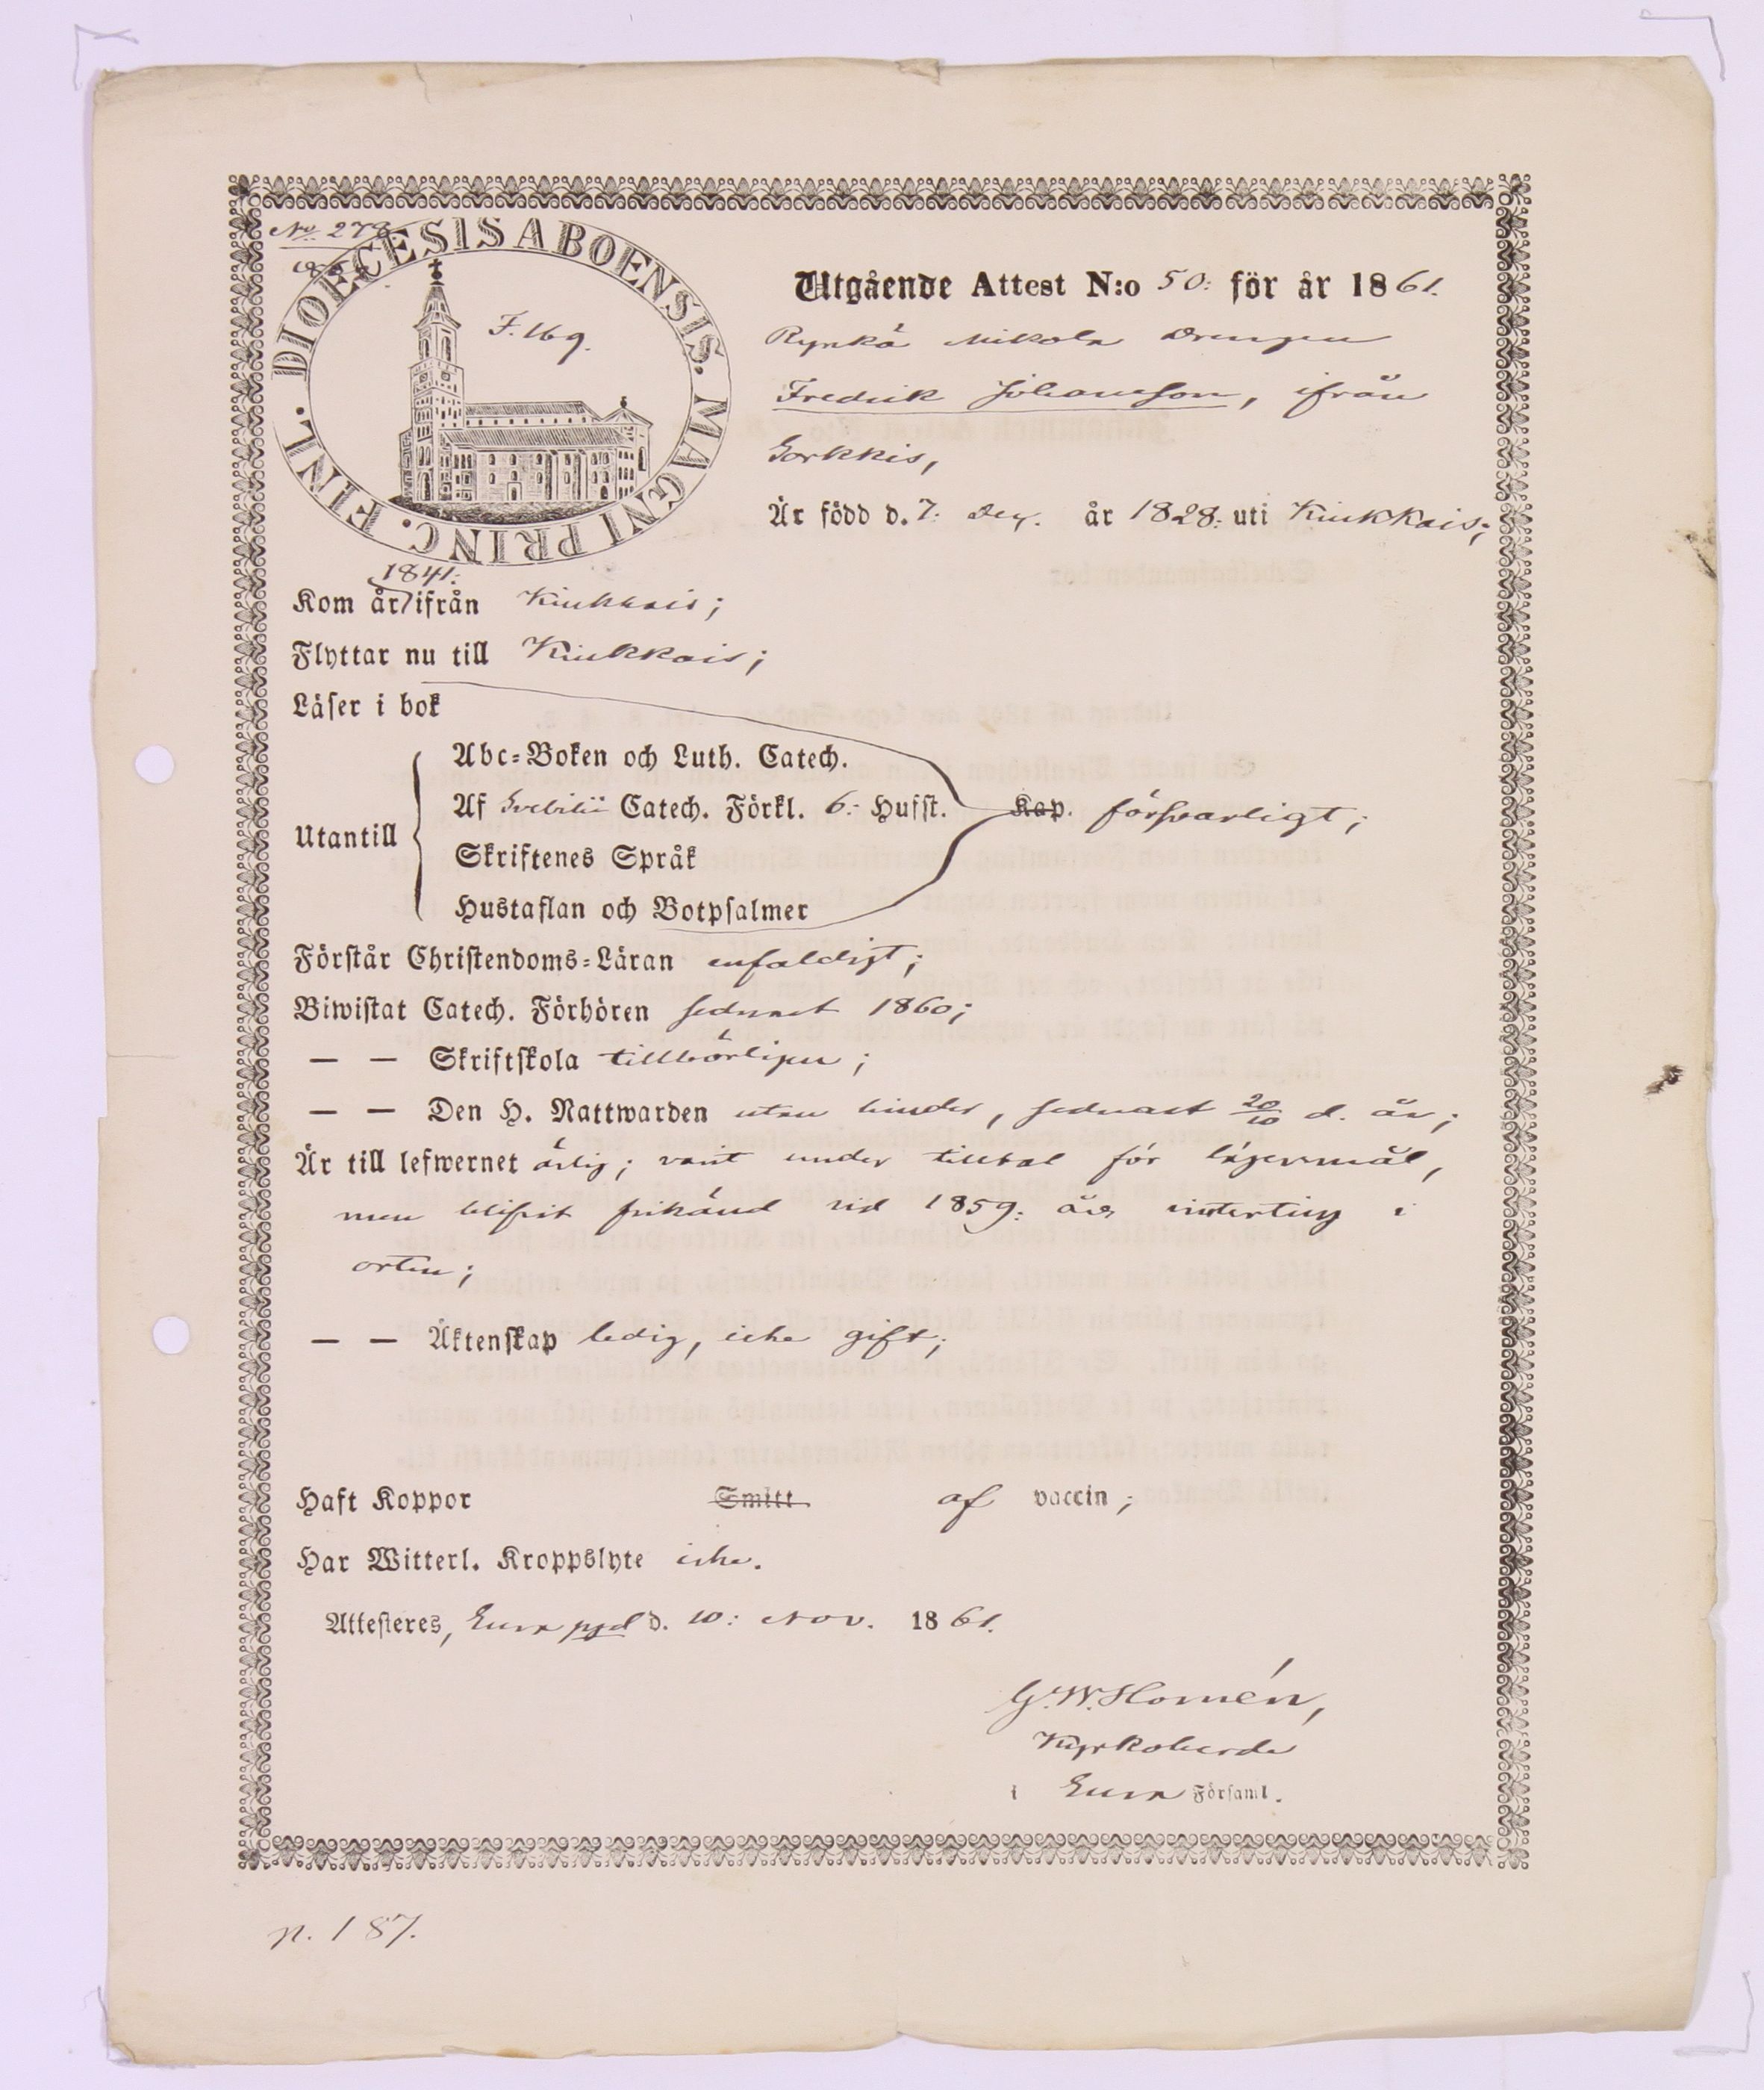 No. 278
DIOECESIS ABOENSIS. MAGNI PRINC. FINL.
F. 169.
Utgående Attest N:o 50: för år 1861.
Mikola Drengen
Fredrik Johansson, ifrån
Är född d. 7: Dec. år 1828: uti Kiukkais;
1841:
Kom år ifrån Kiukkais;
Flyttar nu till Kiukkais;
Läser i bok
Abc-Boken och Luth. Catech.
Af Svebilii Catech. Förkl. 6: Hufst. Kap. försvarligt;
Utantill
Skriftenes Språk
Hustaflan och Botpsalmer
Förstår Christendoms-Läran enfaldigt;
Biwistat Catech. Förhören sednast 1860;
— — Skriftskola tillbörligen;
— — Den H. Nattwarden utan hinder, sednast 20/10 d. år;
Är till lefwernet ärlig; varit under tilltal för lägersmål,
men blifvit frikänd vid 1859: års vinterting i
orten;
— — Äktenskap ledig, icke gift;
Haft Koppor Smitt af vaccin;
Har Witterl. Kroppslyte icke.
Attesteres, Eura pgd d. 10: Nov. 1861.
G. W. Homén,
Kyrkoherde
i Eura Församl.
p. 187.